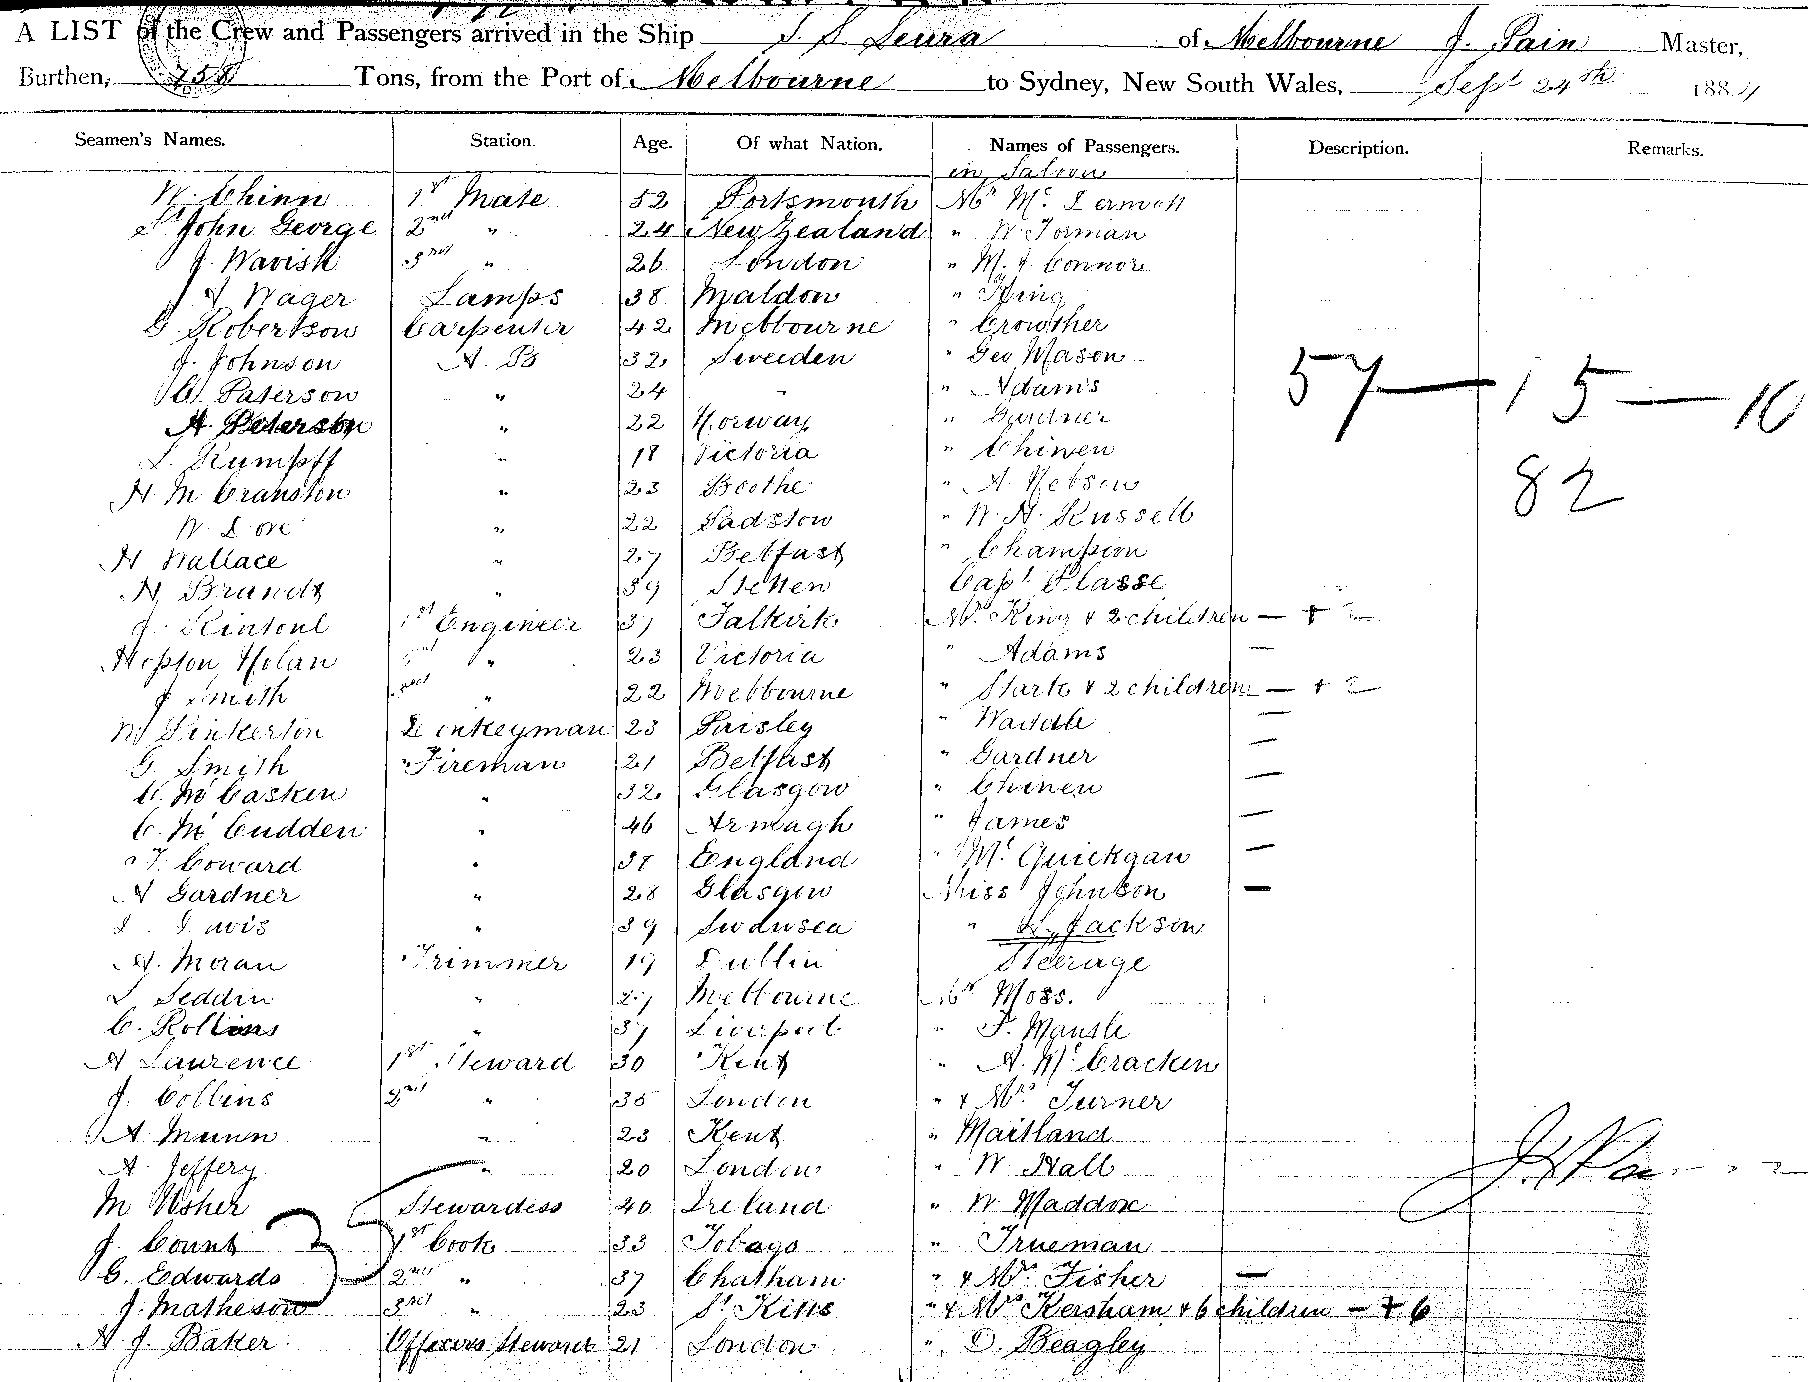 A LIST of the Crew and Passengers arrived in the Ship S. S. Leura of Melbourne J. Pain Master,
Burthen, 758 Tons, from the Port of Melbourne to Sydney, New South Wales, Sept 24th 1884
Seamen's Names. Station. Age. Of what Nation. Names of Passengers. Description. Remarks.
in Saloon
W. Chinn 1st Mate 52 Portsmouth Mr Mc Dermott
St John George 2nd " 24 New Zealand " W. Forman
J. Wavish 3rd " 26 London " M. J. Connor
A Wager Lamps 38 Maldon " King
G. Robertson Carpenter 42 Melbourne " Crowther
J. Johnson A. B 32 Sweeden " Geo Mason
C. Paterson " 24 " " Adams
A. Peterson " 22 Norway " Gardner
57 — 15 — 10
L. Rumpff " 18 Victoria " Chinen
H. M Cranston " 23 Boothe " A. Nelson
82
W. Dove " 22 Padstow " W. H. Russell
H Wallace " 27 Belfast " Champion
H. Brandt " 39 Stetten Capt Plasse
J. Kintoul 1st Engineer 37 Falkirk Mrs King & 2 children — + 2
Hopton Nolan 2nd " 23 Victoria " Adams —
J Smith 3rd " 22 Melbourne " Starke & 2 children — + 2
W Pinkerton Donkeyman 23 Paisley " Waddle —
G. Smith Fireman 21 Belfast " Gardner —
C. Mc Casken " 32 Glasgow " Chinen —
C. Mc Cudden " 46 Armagh " James —
T. Coward " 37 England " Mc Quickgan —
A Gardner " 28 Glasgow Miss Johnson —
" 39 Swansea " L. Jackson
A. Moran Trimmer 19 Dublin Steerage
S Seddin " 27 Melbourne Mr Moss.
C. Rollins " 37 Liverpool " F. Mansle
A Laurence 1st Steward 30 Kent " A. Mc Cracken
J. Collins 2nd " 35 London " & Mrs Turner
A Munn " 23 Kent " Maitland
A. Jeffery " 20 London " W. Hall
M Usher Stewardess 40 Ireland " W Maddox
J. Count 1st Cook 33 Tobago " Trueman
35
C. Edwards 2nd " 37 Chatham " & Mrs Fisher —
J. Matheson 3rd " 23 St Kitts " & Mrs Kersham & 6 children — + 6
H J. Baker Officers Steward 21 London " D. Beagley